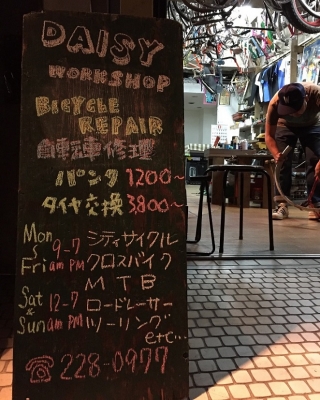 DAISY
WORKSHOP
BICYCLE
REPAIR
自転車修理
パンク 1200~
タイヤ交換 3,800~
Mon 9-7 シティサイクル
~
Fri am PM クロスバイク
MTB
Sat 12-7 ロードレーサー
&
Sun am PM ツーリング
etc...
☎ 228-0977